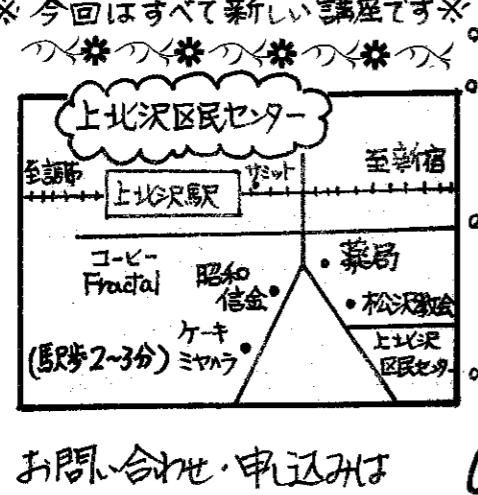 ※今回はすべて新しい講座です※
上北沢区民センター
至調布
上北沢駅
サミット
至新宿
コーヒー
Fractal
昭和
信金
薬局
松沢教会
(駅歩2~3分)
ケーキ
ミヤハラ
上北沢
区民センター
お問い合わせ・申し込みは